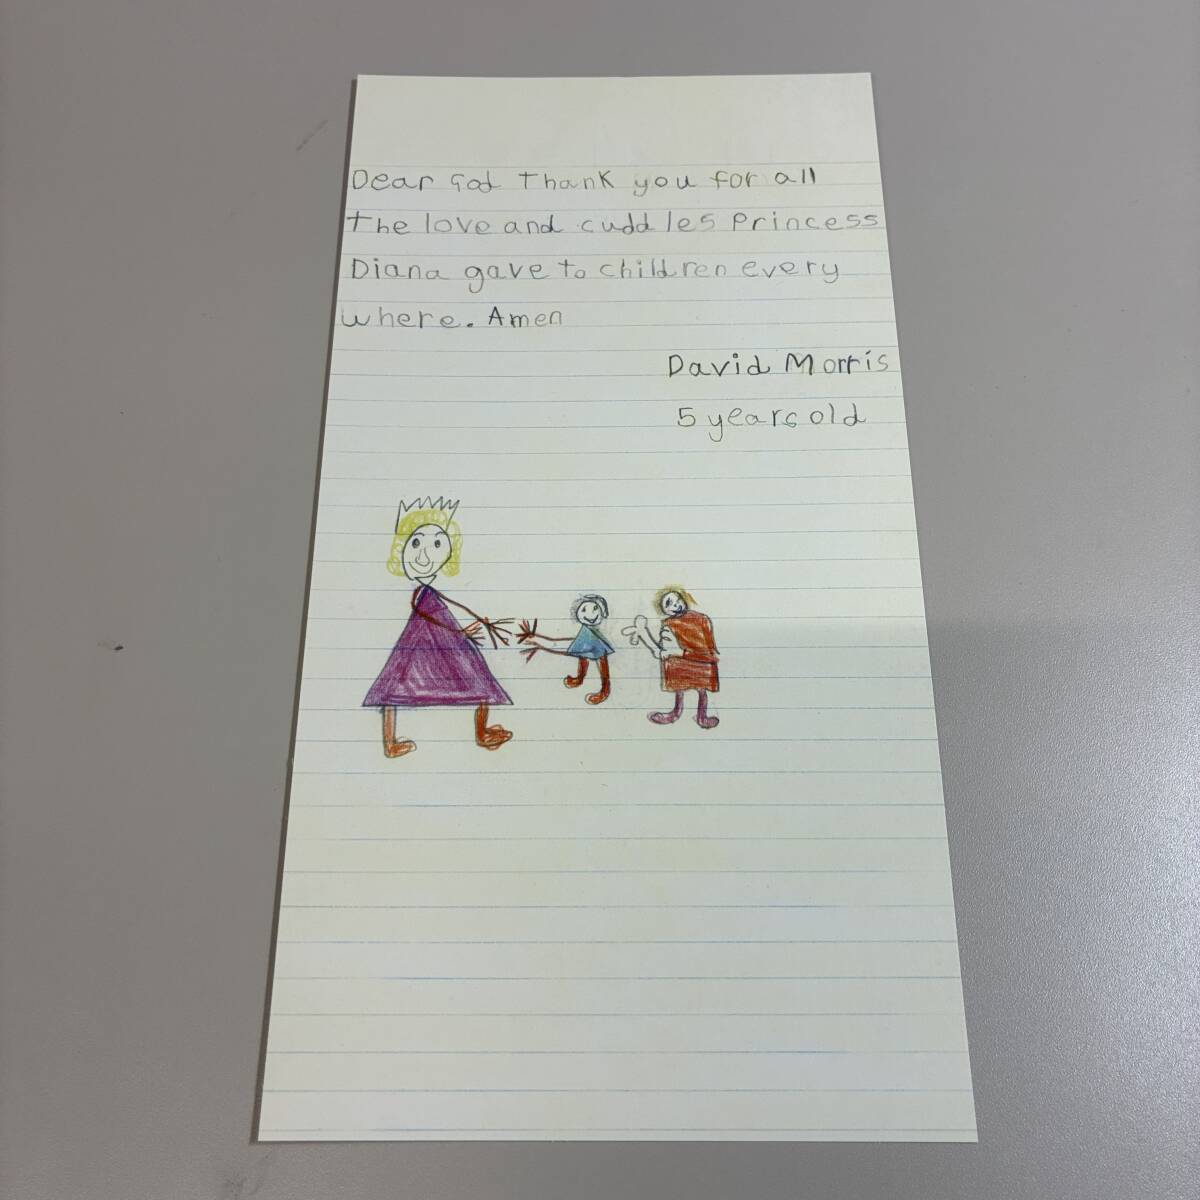 Dear God thank you for all
the love and cuddles Princess
Diana gave to children every
where. Amen
David Morris
5 years old